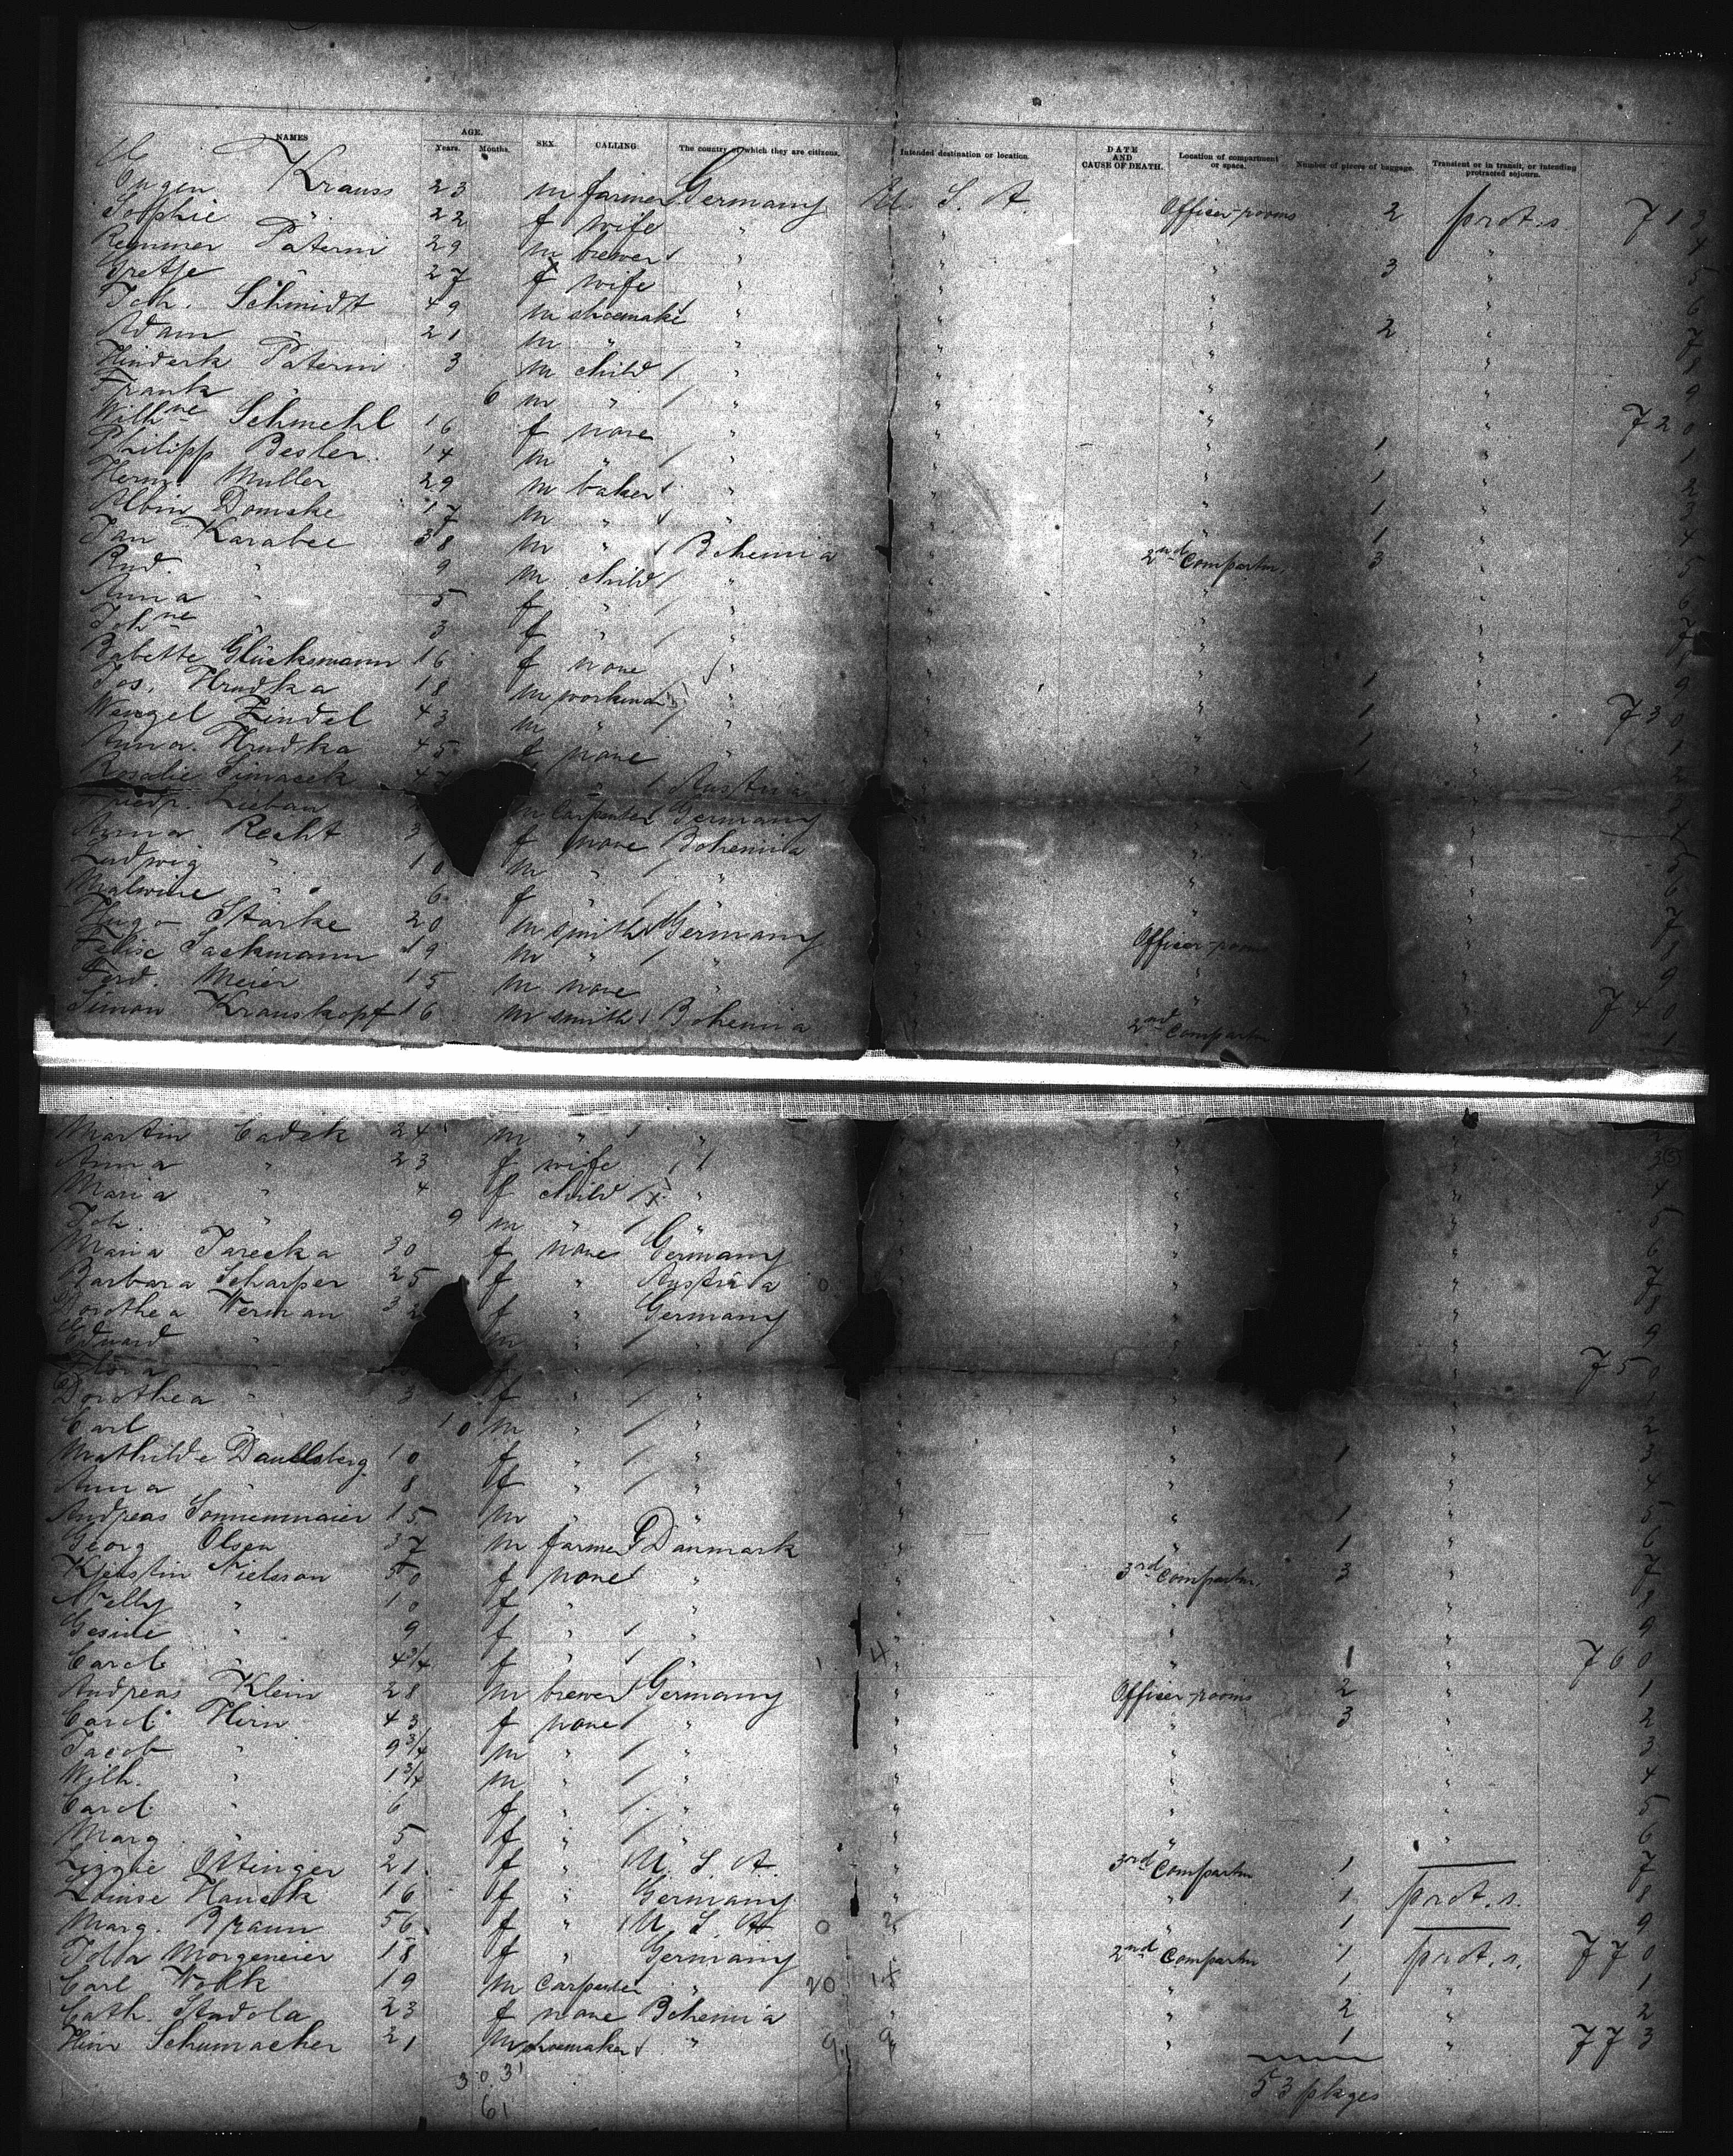 NAMES AGE. Years. Months. SEX. CALLING The country of which they are citizens. Intended destination or location. DATE AND CAUSE OF DEATH. Location of compartment or space. Number of pieces of baggage. Transient or in transit, or intending protracted sojourn.
Eugen Krauss 23 m farmer Germany U. S. A. Officer-rooms 2 prot. s. 713
Sophie " 22 f wife " " " 4
Remmer Paterni 29 m brewer " " " 3 " 5
Gretje " 27 f wife " " " " 6
Joh. Schmidt 49 m shoemake " " " 2 " 7
Adam " 21 m " " " " " 8
Hinderk Paterni 3 m child " " " " 9
Frank " 6 m " " " " " 720
Wilhne Schmehl 16 f none " " " 1 " 1
Philipp Besler 14 m " " " " 1 " 2
Herm. Muller 29 m baker " " " 1 " 3
Albin Domske 17 m " " " " 1 " 4
Jan Karabec 38 m " Bohemia " 2nd Compartm. 3 " 5
Rud. " 9 m child " " " " 6
Anna " 5 f " " " " " 7
Johne " 3 f " " " " " 8
Babette Glücksmann 16 f none " " " 1 " 9
Jos. Hrudka 18 m workman " " " 1 " 730
Wenzel Zindel 43 m " " " " 1 " 1
Anna Hrudka 45 f none " " " 1 " 2
Rosalie Simacek 4 " Austria " " " 3
Friedr. Lieban m carpenter Germany " " 4
Anna Recht 3 f none Bohemia " " 5
Ludwig " 10 m " " " " 6
Malwine " 6 f " " " " 7
Hugo Starke 20 m smith Germany Officer-room " 8
Felix Sackmann 19 m " " " " 9
Ferd. Meier 15 m none " " " 740
Simon Krauskopf 16 m smith Bohemia 2nd Compartm 1
Martin Cadek 24 m " " " " 2
Anna " 23 f wife " " 3
Maria " 4 f child " " " 4
Joh. " 9 m " " " " 5
Maria Jarecka 30 f none Germany " " 6
Barbara Scharper 25 f " Austria " " 7
Dorothea Werman 32 f " Germany " " 8
Eduard " m " " " " 9
Flora " f " " " " 750
Dorothea " 3 f " " " " 1
Carl " 10 m " " " " " 2
Mathilde Daullsberg 10 f " " " " 1 " 3
Anna " 8 f " " " " " 4
Andreas Sonnenmaier 15 m " " " " 1 " 5
Georg Olsen 37 m farmer Danmark " " 1 " 6
Kjerstin Nielsson 50 f none " " 3rd Compartm. 3 " 7
Nelly " 10 f " " " " " 8
Gesine " 9 f " " " " " 9
Carol. " 4 3/4 f " " " " 1 " 760
Andreas Klein 28 m brewer Germany " Officer-rooms 2 " 1
Carol. Hirn 43 f none " " " 3 " 2
Jacob " 9 3/4 m " " " " " 3
Wilh. " 1 3/4 m " " " " " 4
Carol. " 6 f " " " " " 5
Marg. " 5 f " " " " " 6
Lizzie Ottinger 21 f " U. S. A. " 3rd Compartm 1 — 7
Louise Hauck 16 f " Germany " " 1 prot. s. 8
Marg. Braun 56 f " U. S. A " 1 — 9
Marg. Morgeneier 18 f " Germany " 2nd Compartm 1 prot. s. 770
Carl Wolk 19 m Carpenter " " 1 " 1
Cath. Stadola 23 f none Bohemia " " 2 " 2
Hinr Schumacher 21 m shoemaker " " " 1 " 773
53 pkges
61